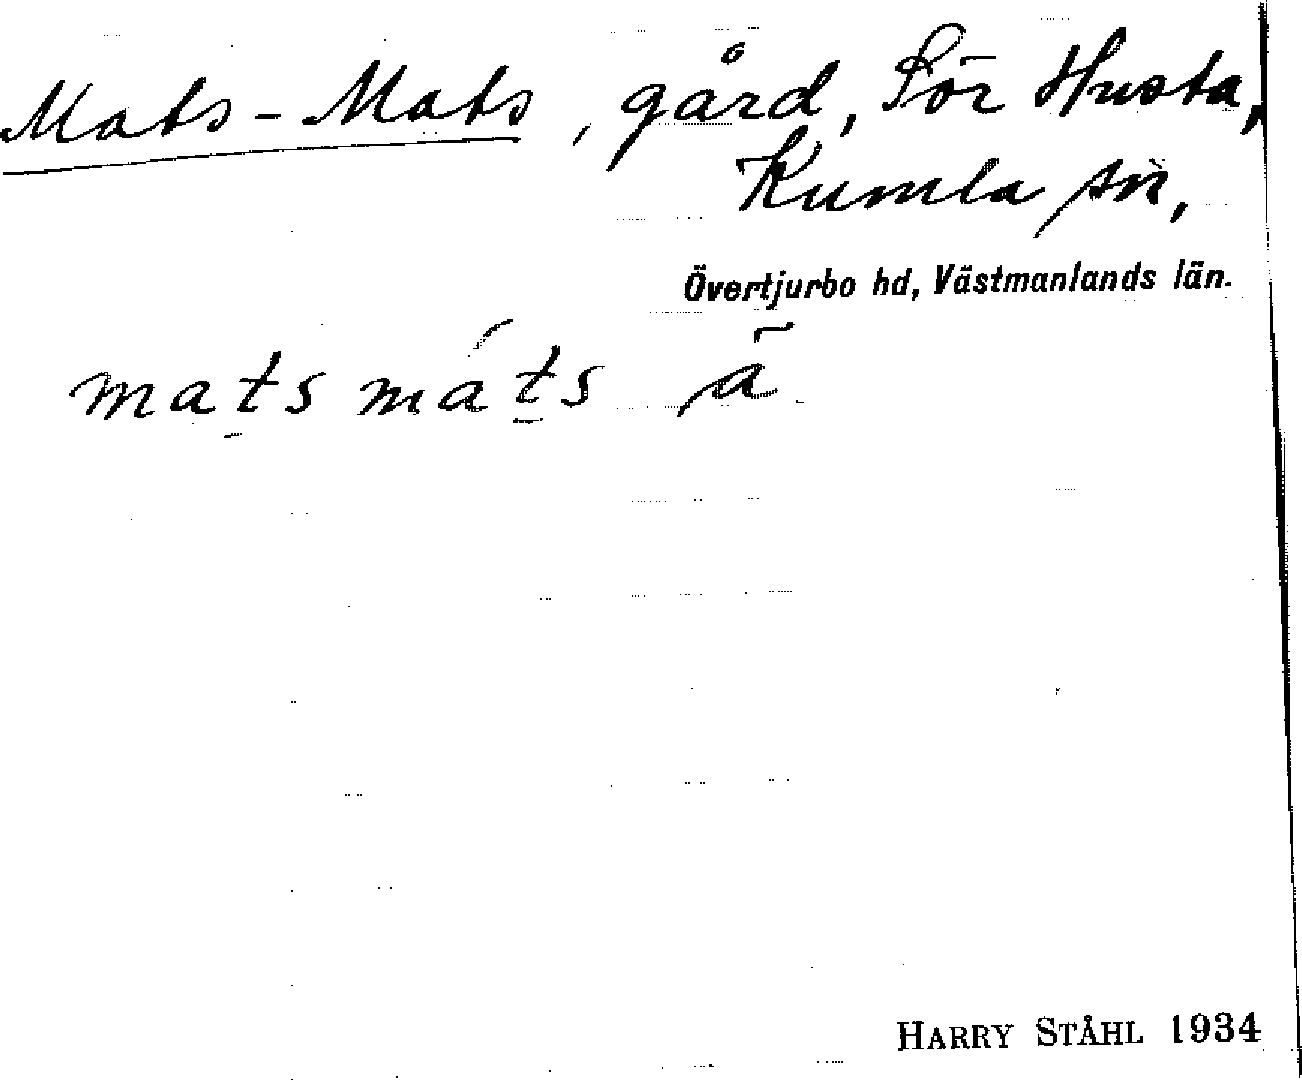 Mats-Mats, gård, Sör Husta,
Kumla sn,
Övertjurbo hd, Västmanlands län.
mats máts
HARRY STÅHL 1934